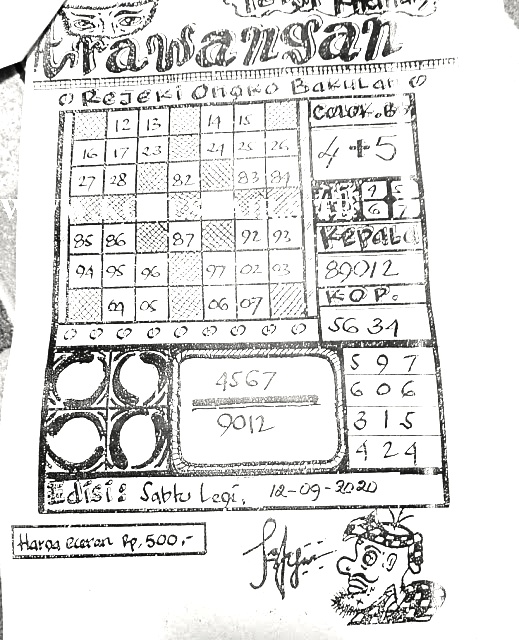 trawangan
Rejeki Ongko Bakulan
12 13 14 15
16 17 23 24 25 26
27 28 82 83 84
85 86 87 92 93
94 95 96 97 02 03
04 05 06 07
4+5
Kepala
89012
KOP.
5634
4567
9012
5 9 7
6 0 6
3 1 5
4 2 4
Edisi: Sabtu Legi, 12-09-2020
Harga eceran Rp. 500,-